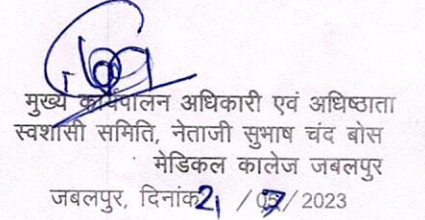 मुख्य कार्यपालन अधिकारी एवं अधिष्ठाता
स्वशासी समिति, नेताजी सुभाष चंद बोस
मेडिकल कालेज जबलपुर
जबलपुर, दिनांक 21 /07/ 2023